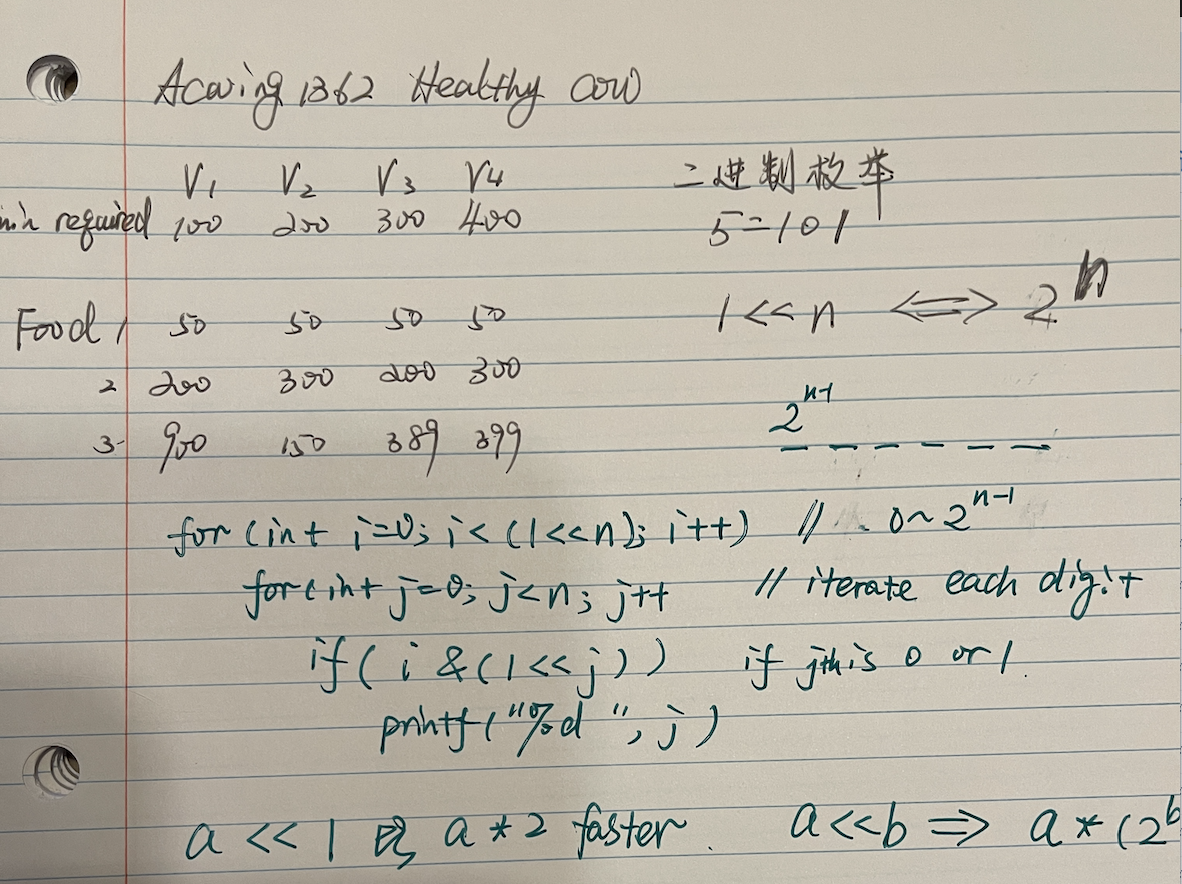 Acwing 1362 Healthy cow
V1 V2 V3 V4 二进制枚举
min required 100 200 300 400 5=101
1<<n <=> 2^n
Food 1 50 50 50 50
2 200 300 200 300
2^n-1
3 900 150 389 399
for (int i=0; i<(1<<n); i++) // 0~2^n-1
for(int j=0; j<n; j++ // iterate each digit
if( i &(1<<j)) if jth is 0 or 1.
printf("%d ", j)
a << 1 比 a*2 faster. a<<b => a*(2^b